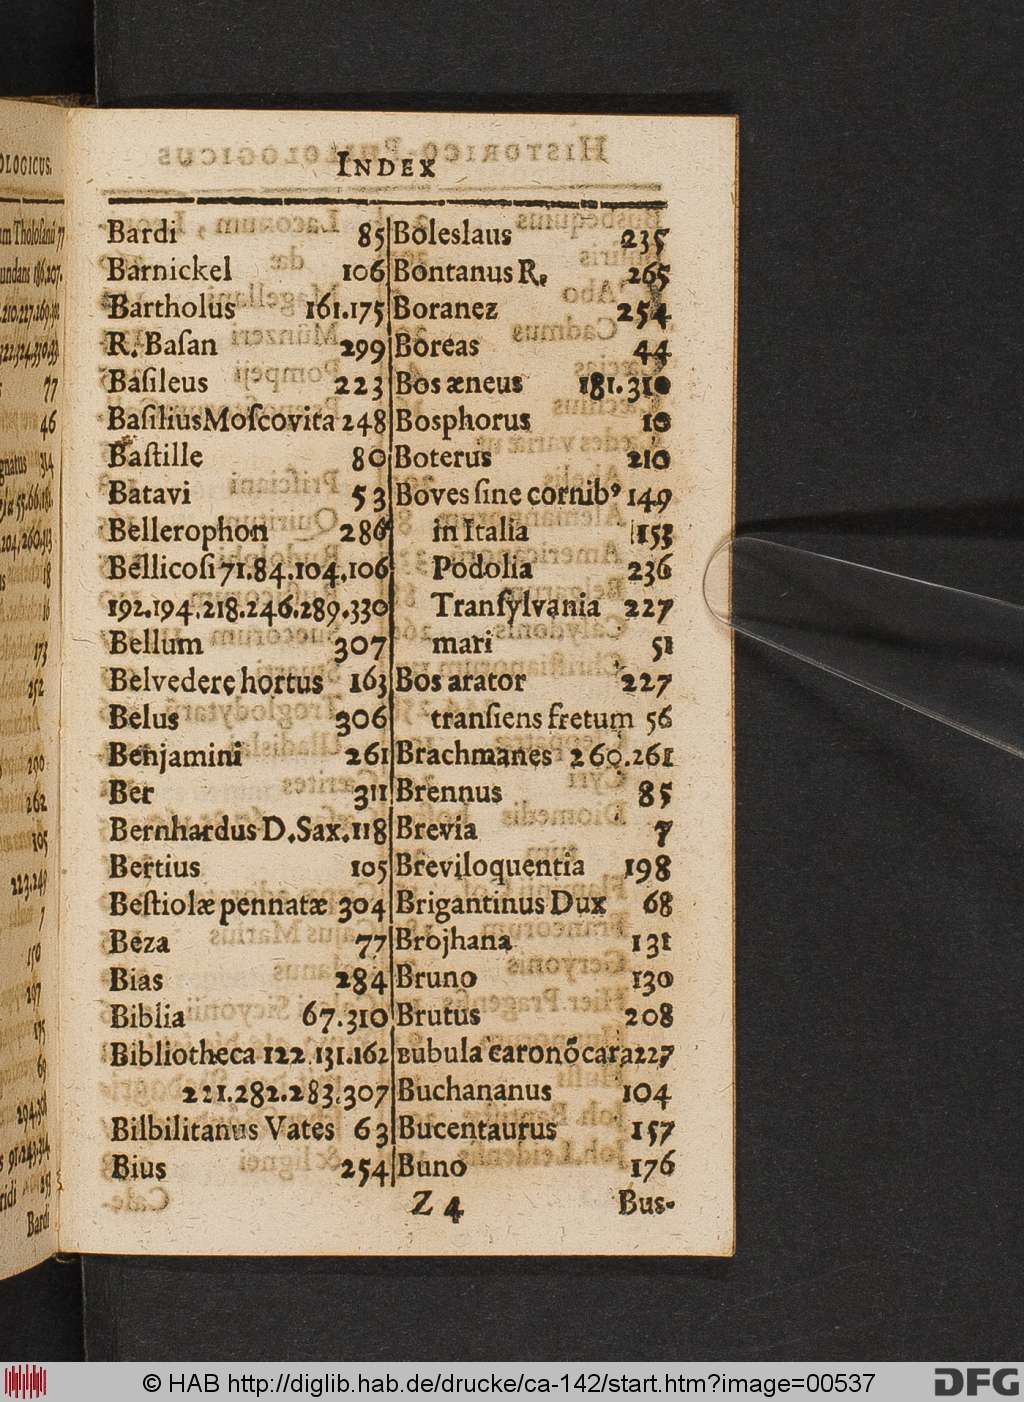 INDEX
Bardi 85
Barnickel 106
Bartholus 161.175
R. Baſan 299
Baſileus 223
Baſilius Moſcovita 248
Baſtille 80
Batavi 53
Bellerophon 286
Bellicoſi 71.84.104.106
192.194.218.246.289.330
Bellum 307
Belvedere hortus 163
Belus 306
Benjamini 261
Ber 311
Bernhardus D. Sax. 118
Bertius 105
Beſtiolæ pennatæ 304
Beza 77
Bias 284
Biblia 67.310
Bibliotheca 122.131.162
221.282.283.307
Bilbilitanus Vates 63
Bius 254
Boleslaus 235
Bontanus R. 265
Boranez 254
Boreas 44
Bos æneus 181.310
Bosphorus 10
Boterus 210
Boves ſine cornibꝰ 149
in Italia 153
Podolia 236
Tranſylvania 227
mari 51
Bos arator 227
tranſiens fretum 56
Brachmanes 260.261
Brennus 85
Brevia 7
Breviloquentia 198
Brigantinus Dux 68
Brojhana 131
Bruno 130
Brutus 208
Bubula caro nō cara 227
Buchananus 104
Bucentaurus 157
Buno 176
Z 4 Bus-
© HAB http://diglib.hab.de/drucke/ca-142/start.htm?image=00537
DFG